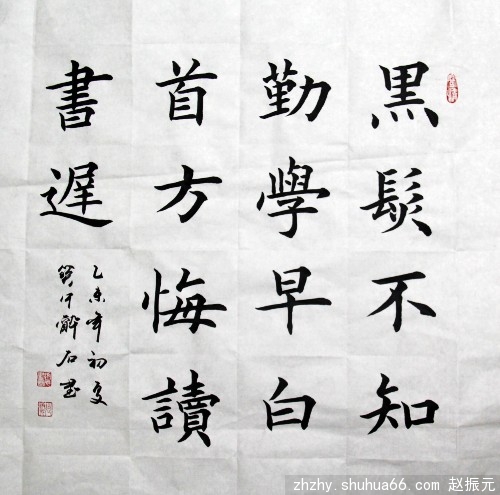 黑髮不知
勤學早白
首方悔讀
書遲
乙未年初夏
石書
zhzhy.shuhua66.com 赵振元